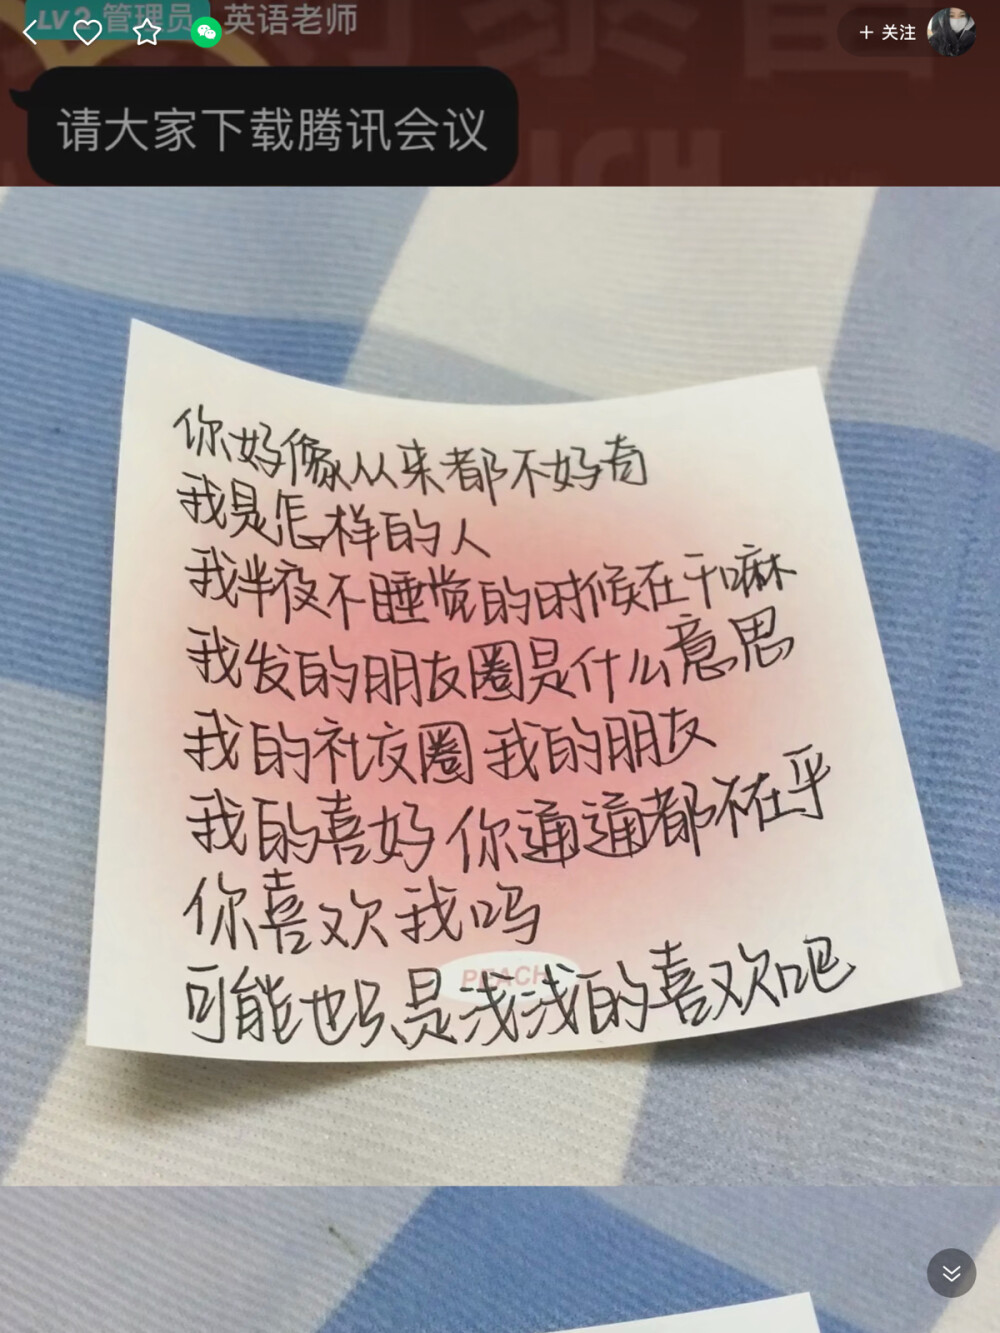 LV 2 管理员 英语老师
+ 关注
请大家下载腾讯会议
你好像从来都不好奇
我是怎样的人
我半夜不睡觉的时候在干嘛
我发的朋友圈是什么意思
我的社交圈 我的朋友
我的喜好 你通通都不在乎
你喜欢我吗
PEACH
可能也只是浅浅的喜欢吧